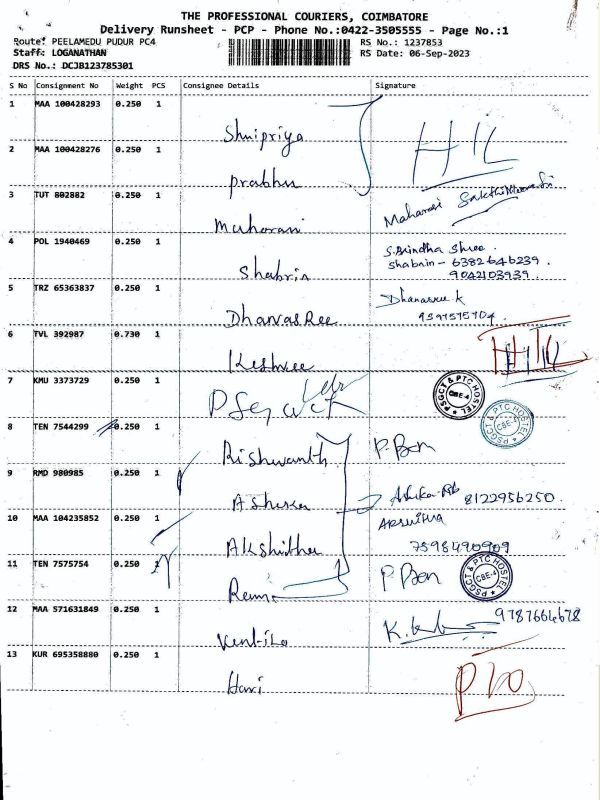 THE PROFESSIONAL COURIERS, COIMBATORE
Delivery Runsheet - PCP - Phone No.:0422-3505555 - Page No.:1
Route: PEELAMEDU PUDUR PC4 RS No.: 1237853
Staff: LOGANATHAN RS Date: 06-Sep-2023
DRS No.: DCJB123785301
S No Consignment No Weight PCS Consignee Details Signature
1 MAA 100428293 0.250 1
Shnipriya HIL
2 MAA 100428276 0.250 1
prabhu
3 TUT 802882 0.250 1
Maharani
4 POL 1940469 0.250 1 S.Brindha Shree.
Shabrin shabnin - 6382646239.
9042103939.
5 TRZ 65363837 0.250 1 Dhanasree.k
DhanasRee
6 TVL 392987 0.730 1
Keshvee
7 KMU 3373729 0.250 1 PSGCT & PTC HOSTEL CBE-4
PSGCT & PTC HOSTEL CBE-4
8 TEN 7544299 0.250 1
Rishwanth P.Ben
9 RMD 980985 0.250 1
8122956250.
10 MAA 104235852 0.250 1
Akshitha 7598490909
11 TEN 7575754 0.250 1 PSGCT & PTC HOSTEL CBE-4
P.Ben
12 MAA 571631849 0.250 1 9787664678
13 KUR 695358880 0.250 1
Hari